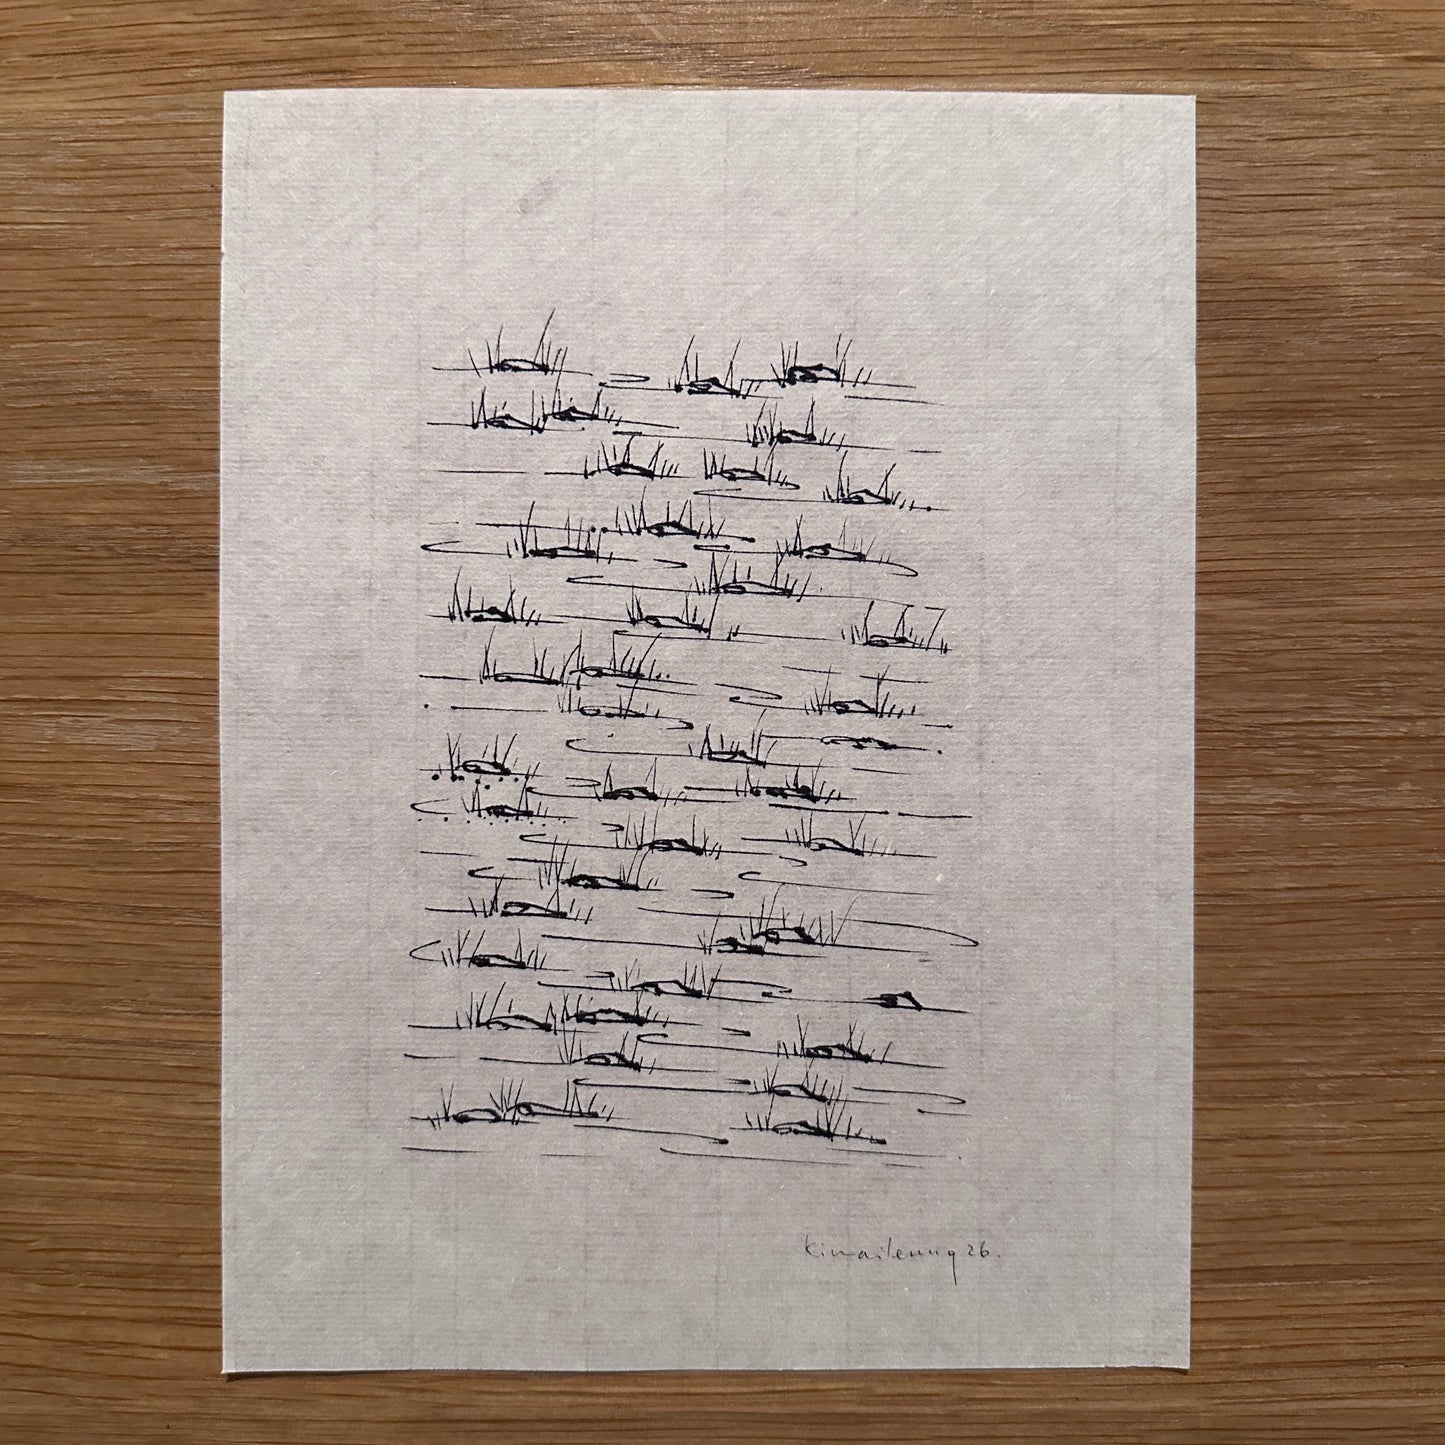 kimaileung 26.